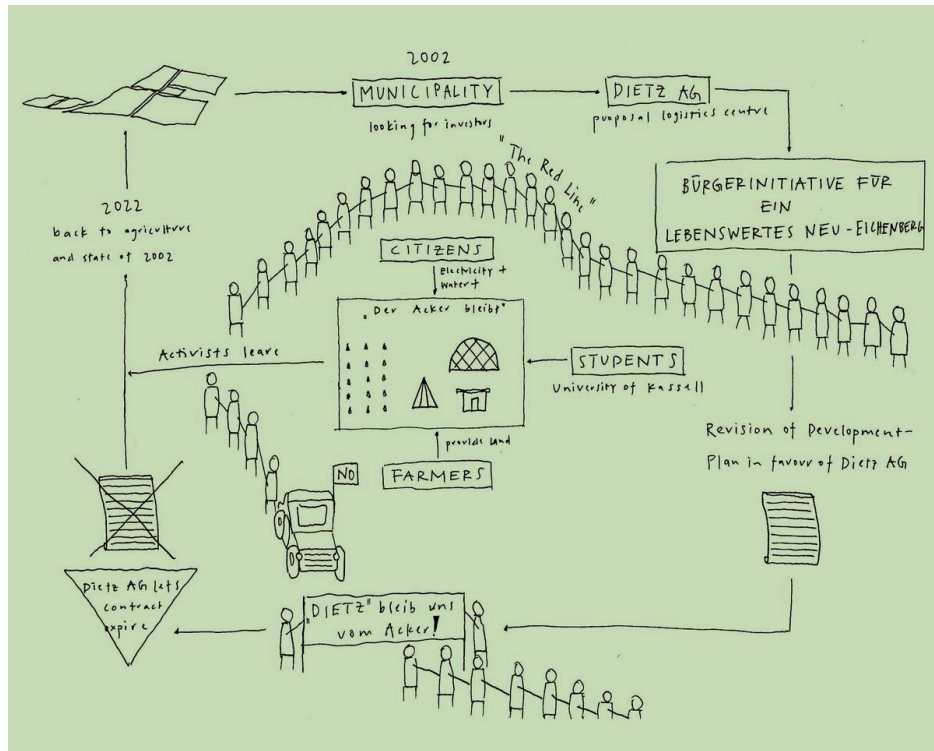 2002
MUNICIPALITY
looking for investors
DIETZ AG
proposal logistics centre
BÜRGERINITIATIVE FÜR
EIN
LEBENSWERTES NEU-EICHENBERG
"The Red Line"
2022
back to agriculture
and state of 2002
CITIZENS
Electricity +
Water +
„Der Acker bleibt"
Activists leave
STUDENTS
University of Kassall
provide land
FARMERS
NO
Revision of Development-
Plan in favour of Dietz AG
Dietz AG lets
contract
expire
„DIETZ" bleib uns
vom Acker!